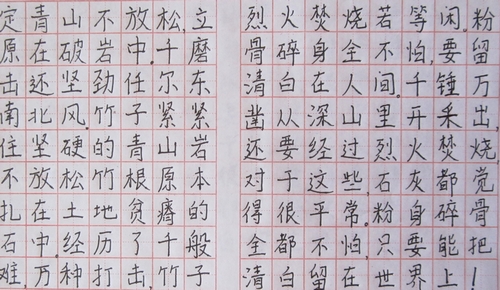 定青山不放松,立
原在破岩中.千磨
击还坚劲任尔东
南北风.竹子紧紧
住坚硬的青山岩
不放松竹根原本
扎在土地贫瘠的
石中.经历了千般
难,万种打击,竹子
烈火焚烧若等闲.粉
骨碎身全不怕,要留
清白在人间.千锤万
凿从深山里开采出
还要经过烈火焚烧
对于这些,石灰都觉
得很平常.粉身碎骨
全都不怕,只要能把
清白留在世界上!